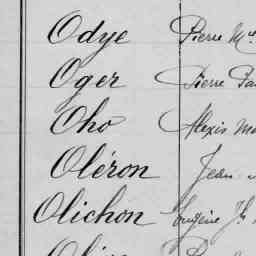 Odye Pierre
Oger Pierre
Oho Alexis
Oléron Jean
Olichon Eugène